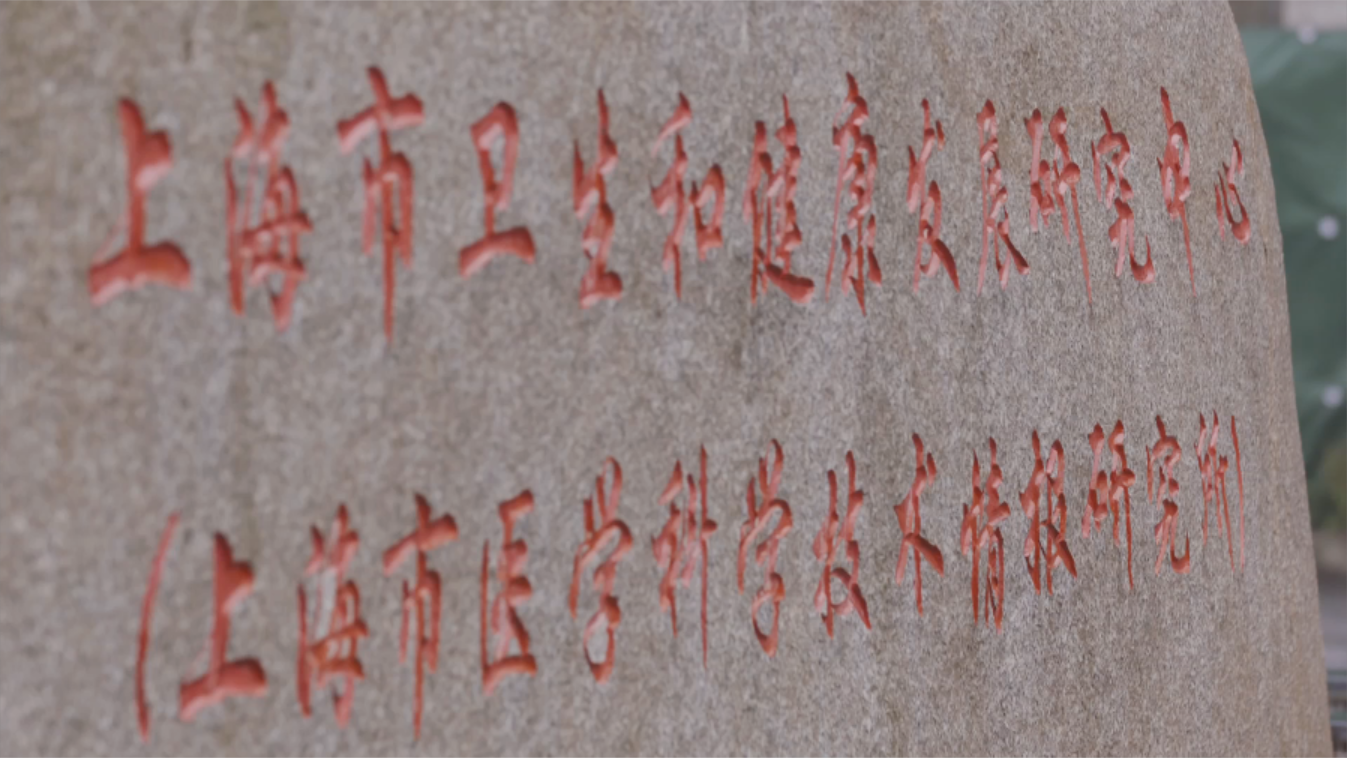 上海市卫生和健康发展研究中心
(上海市医学科学技术情报研究所